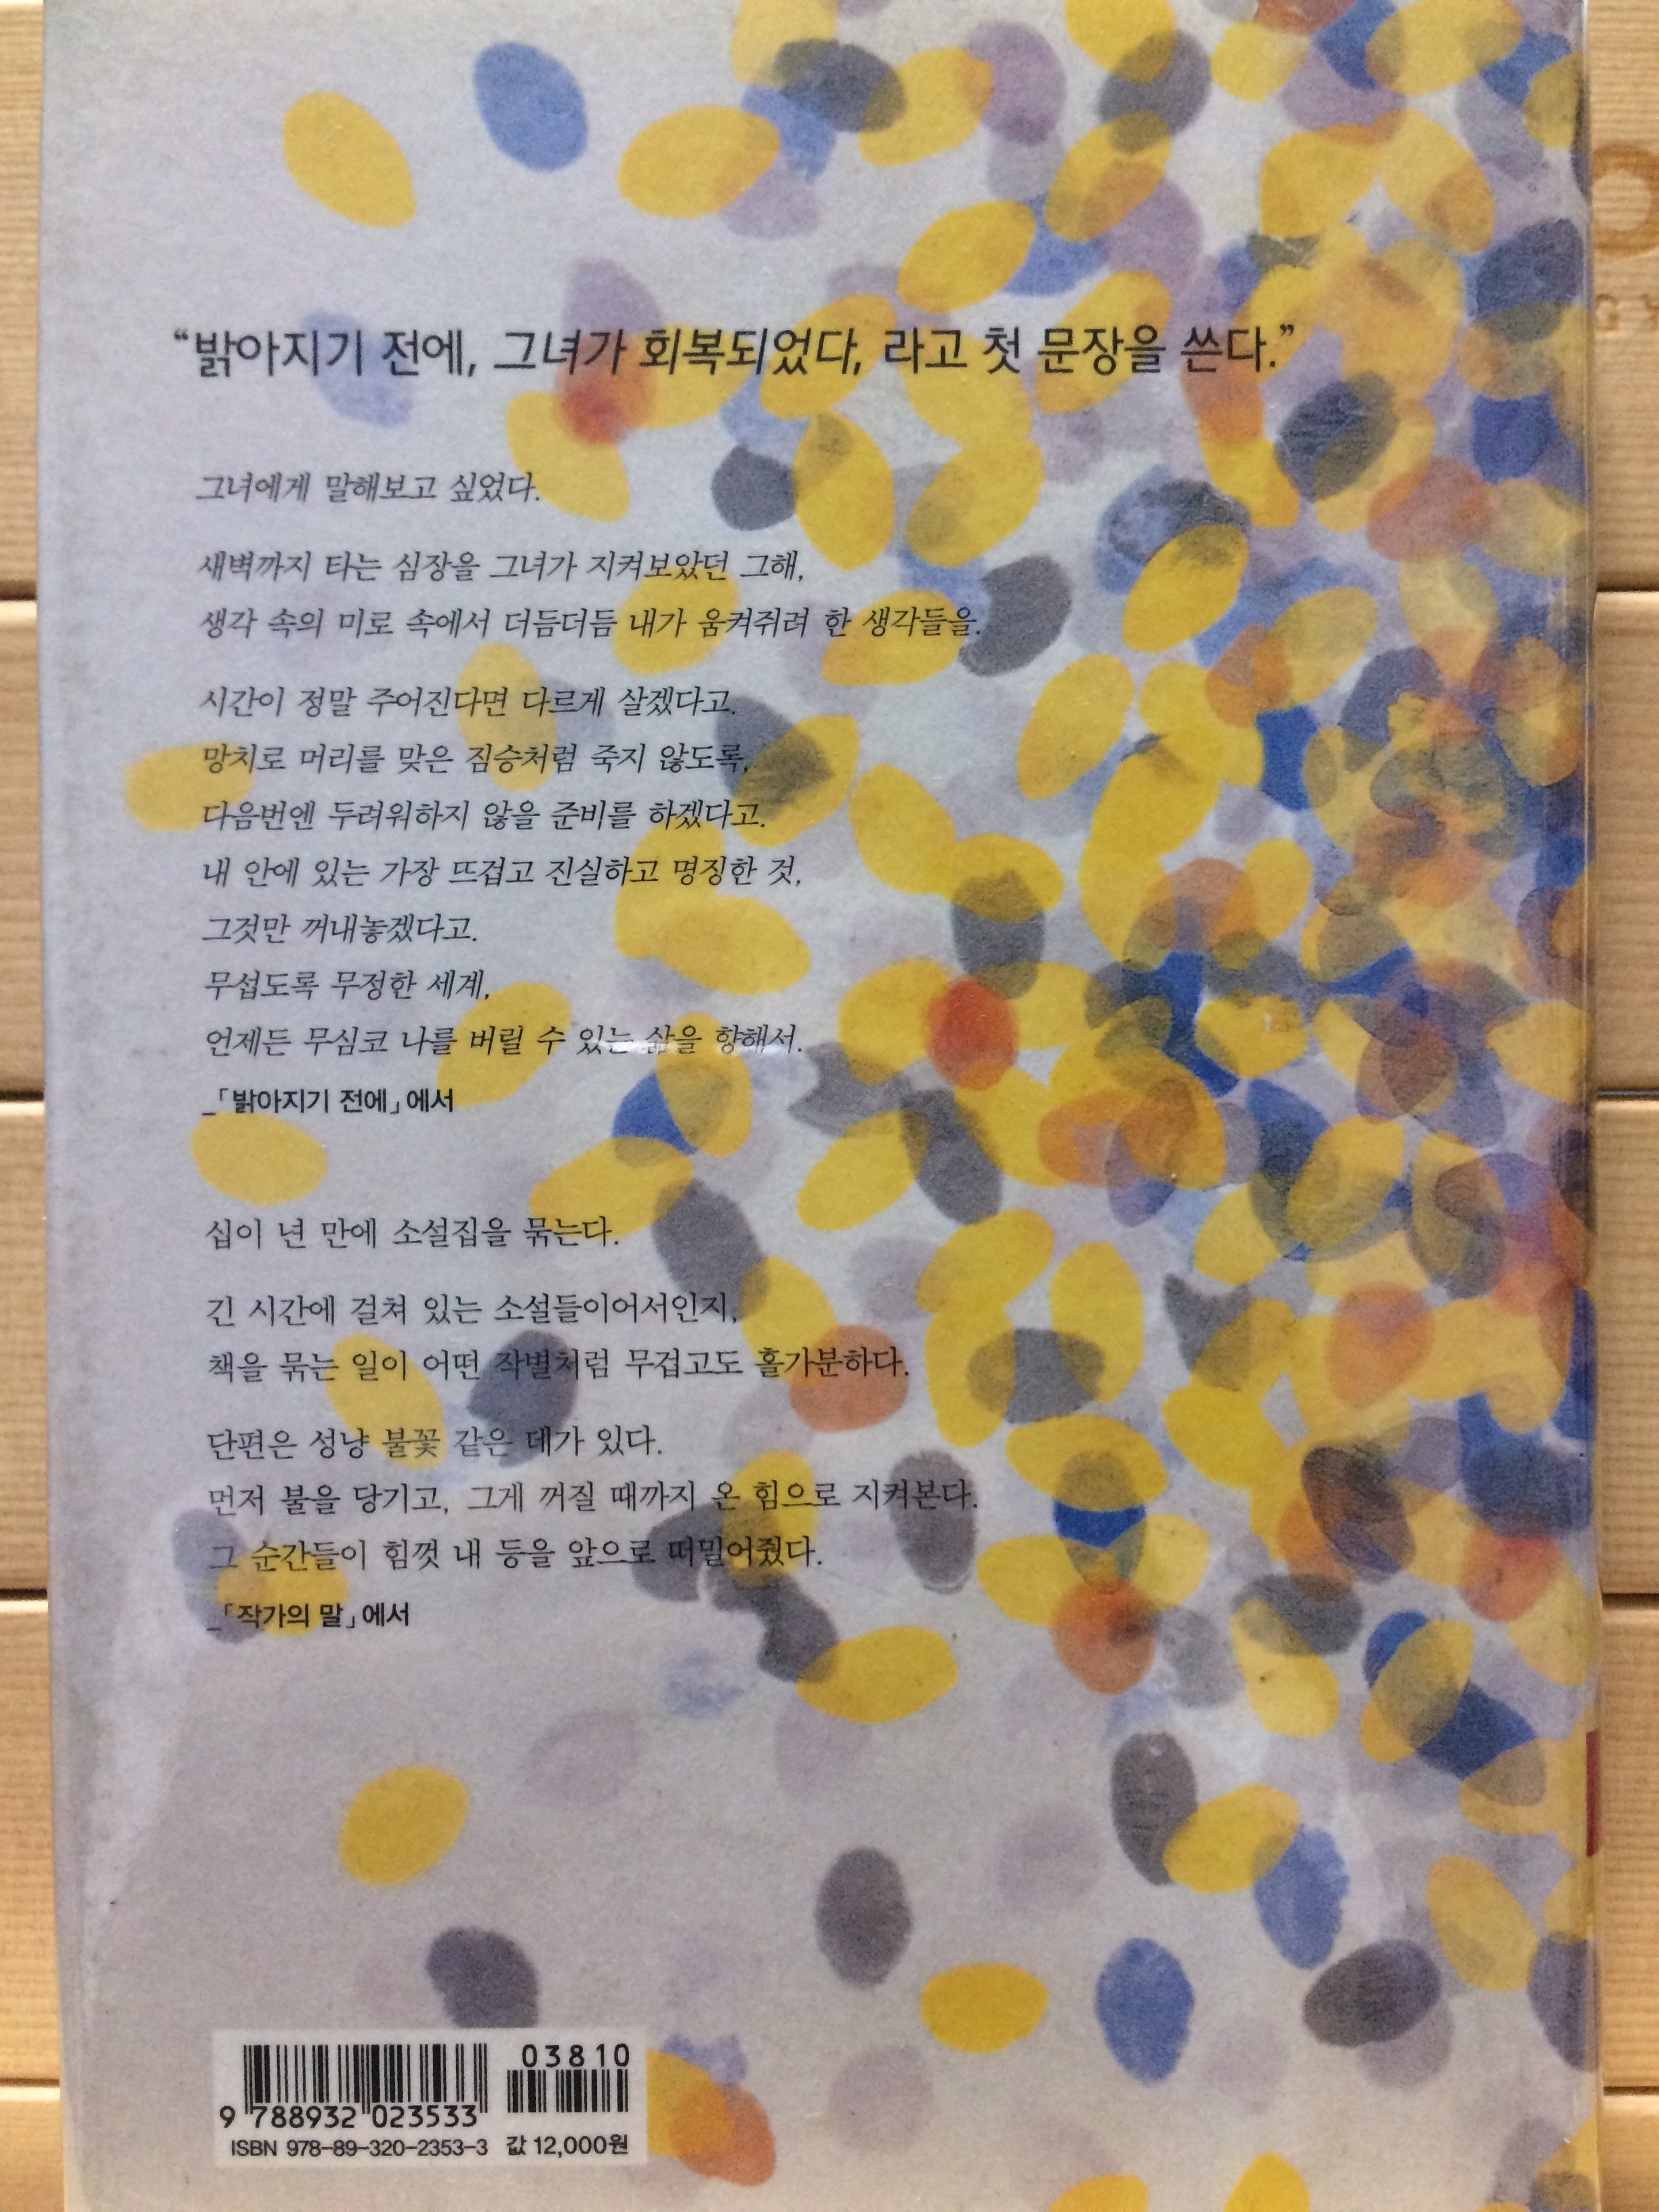 “밝아지기 전에, 그녀가 회복되었다, 라고 첫 문장을 쓴다.”
그녀에게 말해보고 싶었다.
새벽까지 타는 심장을 그녀가 지켜보았던 그해,
생각 속의 미로 속에서 더듬더듬 내가 움켜쥐려 한 생각들을.
시간이 정말 주어진다면 다르게 살겠다고.
망치로 머리를 맞은 짐승처럼 죽지 않도록,
다음번엔 두려워하지 않을 준비를 하겠다고.
내 안에 있는 가장 뜨겁고 진실하고 명징한 것,
그것만 꺼내놓겠다고.
무섭도록 무정한 세계,
언제든 무심코 나를 버릴 수 있는 삶을 향해서.
_「밝아지기 전에」에서
십이 년 만에 소설집을 묶는다.
긴 시간에 걸쳐 있는 소설들이어서인지,
책을 묶는 일이 어떤 작별처럼 무겁고도 홀가분하다.
단편은 성냥 불꽃 같은 데가 있다.
먼저 불을 당기고, 그게 꺼질 때까지 온 힘으로 지켜본다.
그 순간들이 힘껏 내 등을 앞으로 떠밀어줬다.
_「작가의 말」에서
03810
9 788932 023533
ISBN 978-89-320-2353-3 값 12,000원